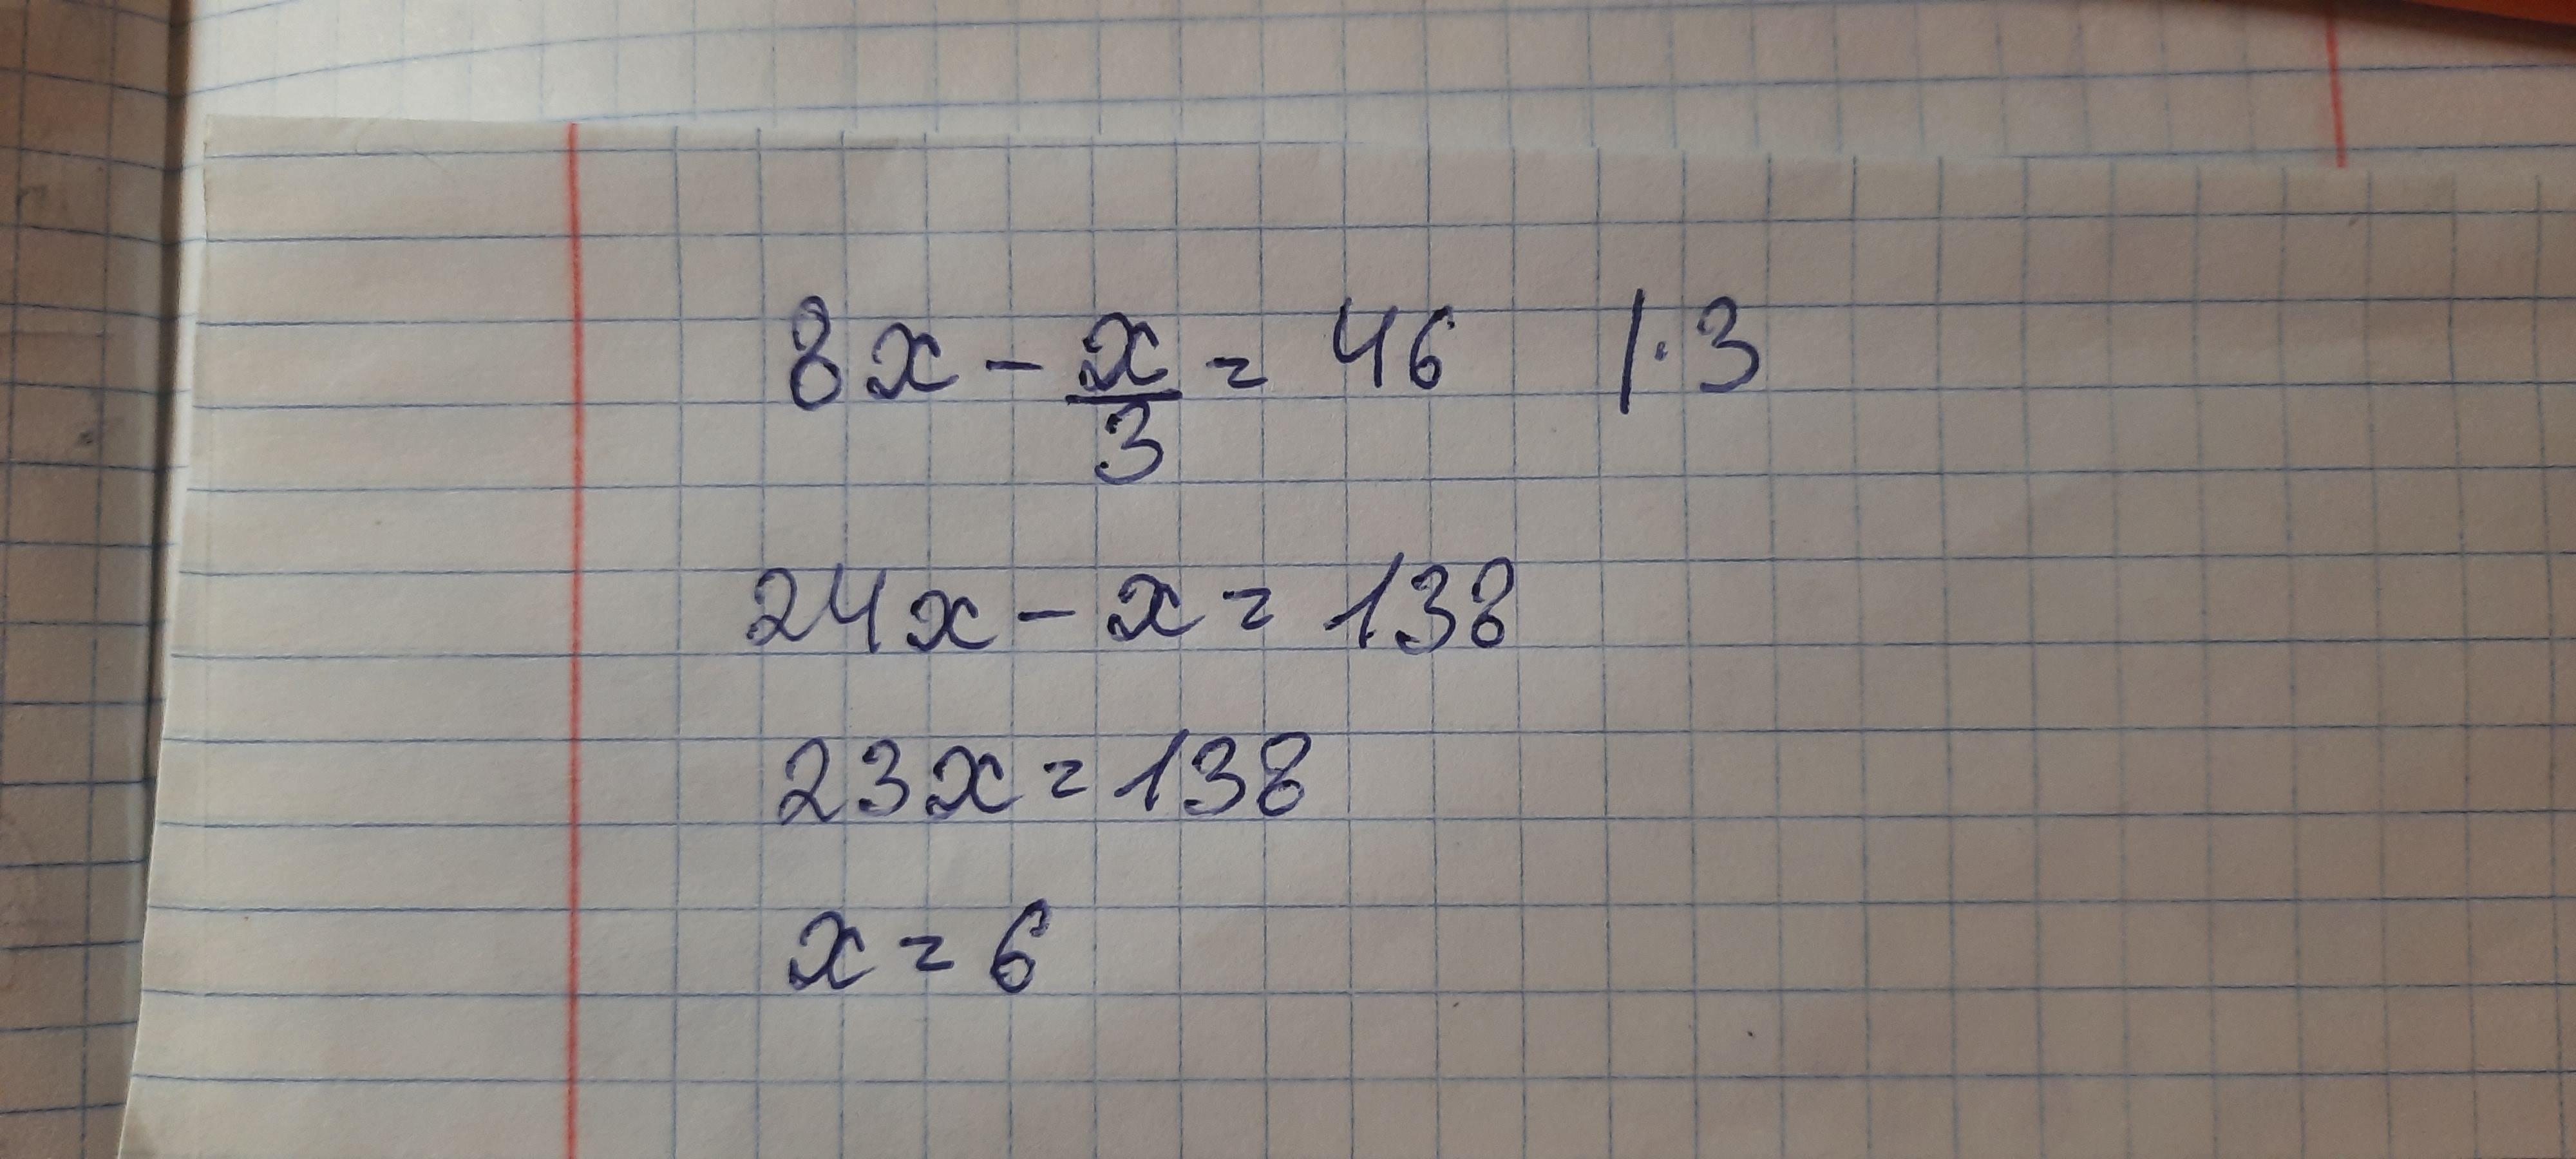 8x - x/3 = 46 |·3
24x - x = 138
23x = 138
x = 6